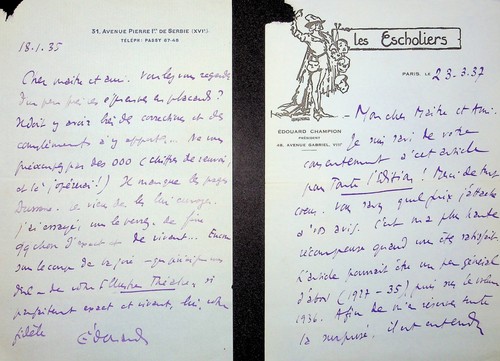 31, AVENUE PIERRE Ier DE SERBIE (XVIe)
TÉLÉPH: PASSY 67-48
18.1.35
Cher maître et ami. Voulez vous regarder
d'un peu près ces épreuves en placards?
Il doit y avoir des corrections et des
compléments à y apporter... Ne vous
préoccupez pas des 000 (chiffres de renvoi,
Il manque les pages
Je viens de les lui envoyer.
j'ai essayé, de faire
qq chose d'exact et de vivant... Encore
sur le coup de
de votre Théâtre, si
parfaitement exact et vivant, votre
fidèle
Édouard
les Escholiers
PARIS, LE 23-3-37
ÉDOUARD CHAMPION
PRÉSIDENT
46, AVENUE GABRIEL, VIIIe
Mon cher Maître et Ami.
Je suis ravi de votre
consentement à cet article
pour Toute l'Édition! Merci de tout
cœur. Vous savez quel prix j'attache
à vos avis. C'est ma plus haute
récompense quand vous êtes satisfait.
L'article pourrait être un peu général
d'abord (1927-35) puis sur le volume
1936. Afin de m'en réserver toute
la surprise, il est entendu